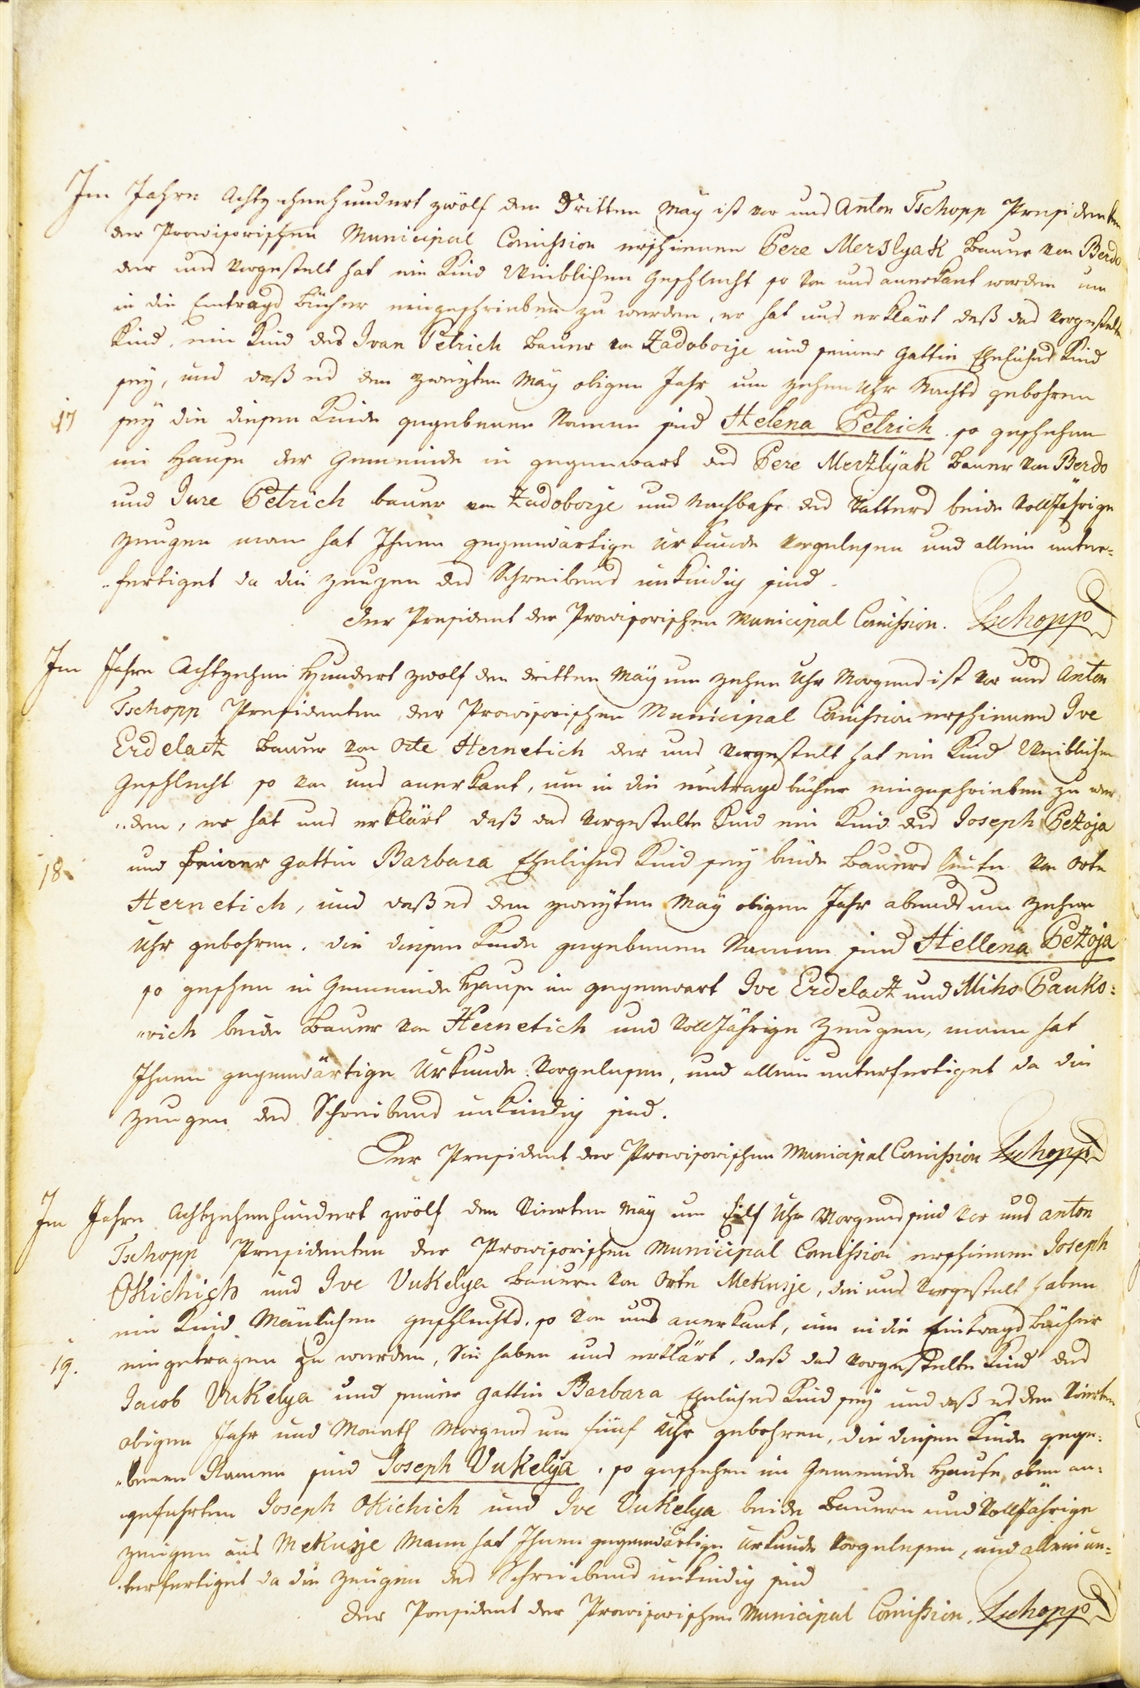 Im Jahre Achtzehenhundert zwölf den Dritten Maÿ ist vor uns Anton Tschopp Presidenten
der Prowisorischen Municipal Comission erschienen Pere Merslyak Bauer von Berdo
der uns Vorgestelt hat ein Kind Weiblichen Geschlecht so von uns anerkant worden um
in die Eintrags Bücher eingeschrieben zu werden, er hat uns erklärt daß das Vorgestelte
Kind, ein Kind des Ivan Petrich Bauer von Zadoborje und seiner Gattin Eheliches Kind
seÿ, und daß es den zweÿten Maÿ obigen Jahr um zehen Uhr Nachts gebohren
17 seÿ die diesen Kinde gegebenen Namen sind Helena Petrich so geschehen
im Hause der Gemeinde in gegenwart des Pere Merzlÿak Bauer von Berdo
und Jure Petrich bauer von Zadoborje und Nachbahr des Vatters beide Volljährige
Zeugen man hat Ihnen gegenwärtige Urkunde Vorgelesen und allein unter=
„fertiget da die Zeugen des Schreibens unkündig sind.
Der President der Prowisorischen Municipal Comission. Tschopp
Im Jahre Achtzehen Hundert zwölf den dritten Maÿ um zehen Uhr Morgens ist vor uns Anton
Tschopp Presidenten, der Prowisorischen Municipal Comission erschienen Ive
Erdelacz Bauer von Orte Hernetich der uns Vorgestelt hat ein Kind Weiblichen
Geschlecht so von uns anerkant, um in die eintrags bücher eingeschrieben zu wer
„den, er hat uns erklärt daß das Vorgestelte Kind ein Kind des Joseph Petzoja
und seiner Gattin Barbara Eheliches Kind seÿ beide Bauers Leute von Orte
18. Hernetich, und daß es den zweÿten Maÿ obigen Jahr abends um zehen
Uhr gebohren. die diesen Kinde gegebenen Namen sind Hellena Petzoja
so geschen in Gemeinde Hause im gegenwart Ive Erdelacz und Miho Panko=
„vich beide Bauer von Hernetich und Volljährige Zeugen, mann hat
Ihnen gegenwärtige Urkunde Vorgelesen, und allein unterfertiget da die
Zeugen des Schreibens unkündig sind.
Der President der Prowisorischen Municipal Comission Tschopp
Im Jahre Achtzehenhundert zwölf den Vierten Maÿ um Eilf Uhr Morgens sind vor uns anton
Tschopp Presidenten der Prowisorischen Municipal Comission erschienen Joseph
Okichich und Ive Vukelya Bauern von Orte Mekusje, die uns Vorgestelt haben
ein Kind Mänlichen geschlechts. so von uns anerkant, um in die Eintrags Bücher
19. eingetragen zu werden, Sie haben uns erklärt, daß das vorgestelte Kind des
Jacob Vukelya und seiner gattin Barbara Eheliches Kind seÿ und daß es den Vierten
obigen Jahr und Monath Morgens um fünf Uhr gebohren, die diesen Kinde gege=
„benen Namen sind Joseph Vukelÿa. so geschehen im Gemeinde Hause, oben an=
geführten Joseph Okichich und Ive Vukelya beide Bauern und Volljährige
Zeugen aus Mekusje Mann hat Ihnen gegenwärtige Urkunde Vorgelesen, und allein un=
terfertiget da die Zeugen des Schreibens unkündig sind
Der President der Prowisorischen Municipal Comission. Tschopp